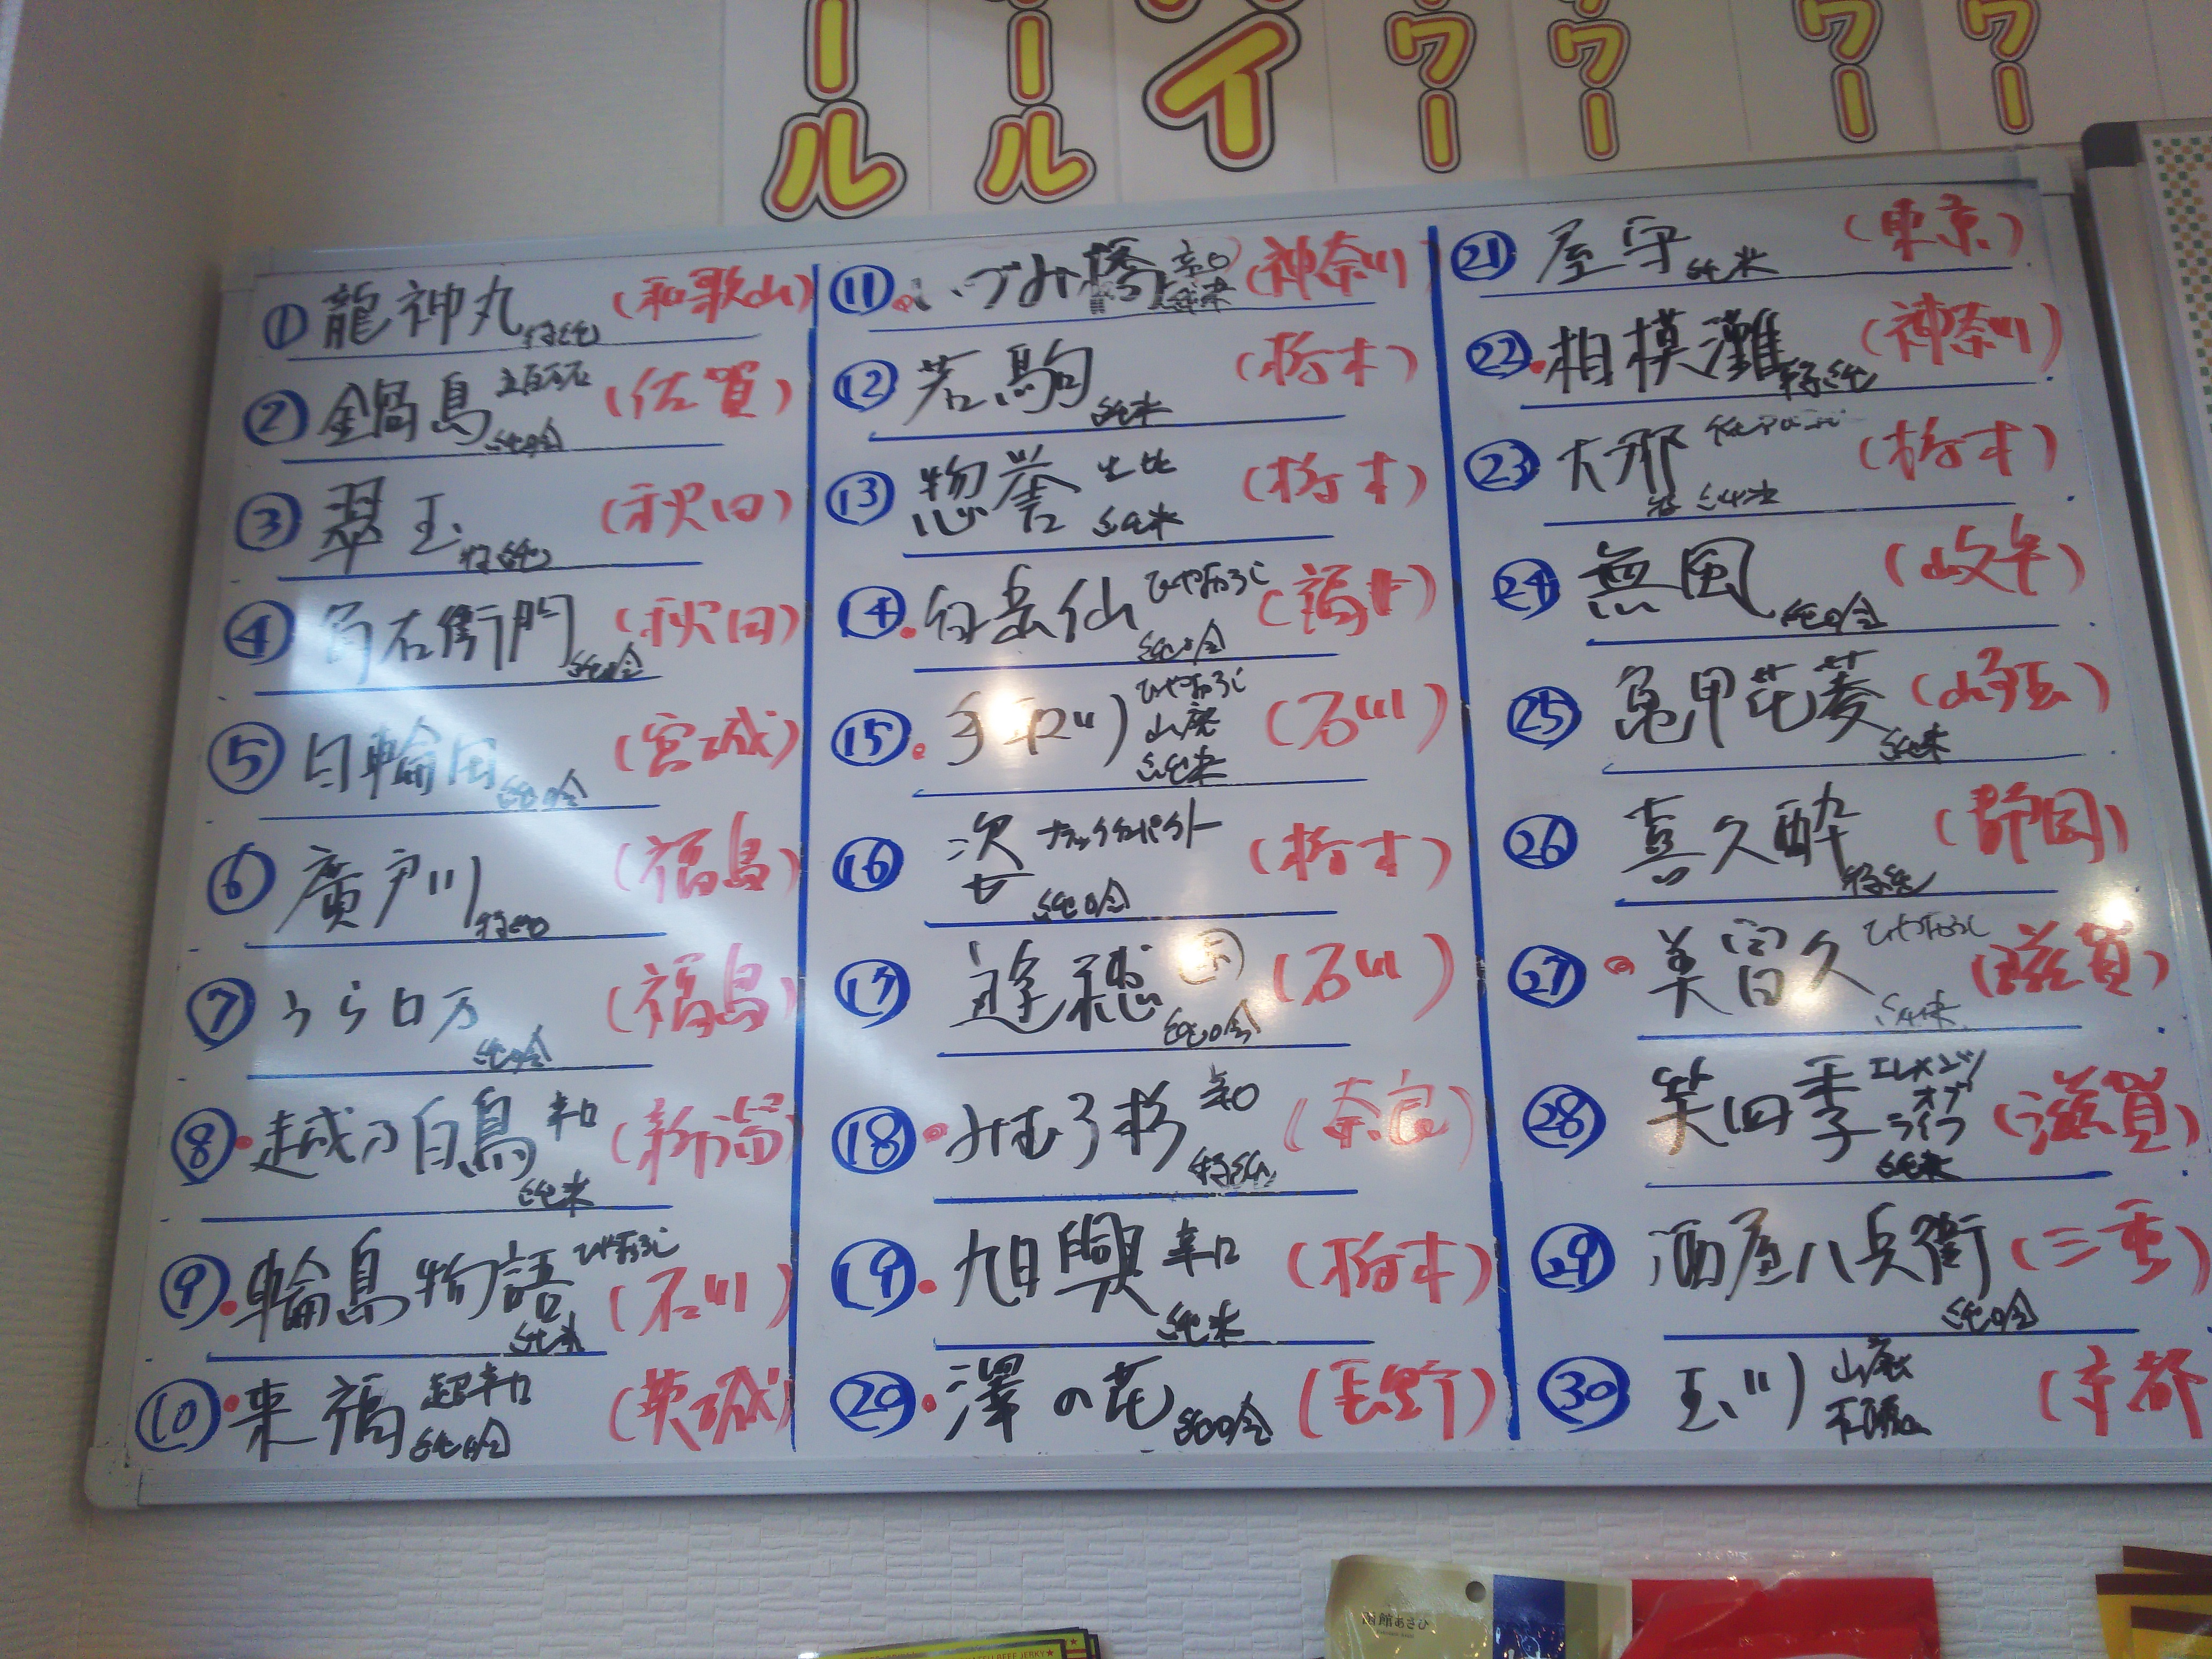 ール
ール
イ
ワー
ワー
ワー
ワー
① 龍神丸 特純 (和歌山)
② 鍋島 五百万石 純吟 (佐賀)
③ 翠玉 特純 (秋田)
④ 角右衛門 純吟 (秋田)
⑤ 日輪田 純吟 (宮城)
⑥ 廣戸川 特純 (福島)
⑦ うら日万 純吟 (福島)
⑧ 越乃白鳥 辛口 純米 (新潟)
⑨ 輪島物語 ひやおろし 純米 (石川)
⑩ 来福 超辛口 純吟 (茨城)
⑪ いづみ橋 辛口 純米 (神奈川)
⑫ 若駒 純米 (栃木)
⑬ 惣誉 生酛 純米 (栃木)
⑭ 白岳仙 ひやおろし 純吟 (福井)
⑮ 手取川 ひやおろし 山廃 純米 (石川)
⑯ 姿 ブラックインパクト 純吟 (栃木)
⑰ 逢穂 純吟 (石川)
⑱ みむろ杉 辛口 特純 (奈良)
⑲ 旭興 辛口 純米 (栃木)
⑳ 澤の花 純吟 (長野)
㉑ 屋守 純米 (東京)
㉒ 相模灘 特純 (神奈川)
㉓ 大那 特純米 (栃木)
㉔ 無風 純吟 (岐阜)
㉕ 亀甲花菱 純米 (埼玉)
㉖ 喜久酔 特純 (静岡)
㉗ 美冨久 ひやおろし 純米 (滋賀)
㉘ 笑四季 エレメンツ オブ ライフ 純米 (滋賀)
㉙ 酒屋八兵衛 純吟 (三重)
㉚ 玉川 山廃 (京都
函館あさひ
BEEF JERKY★